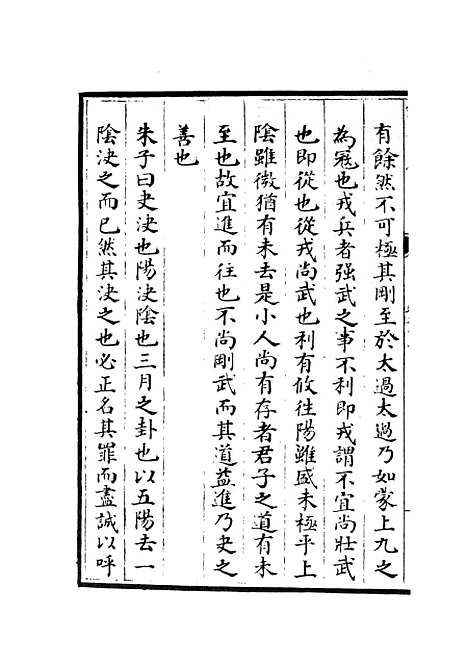 有餘然不可極其剛至於太過太過乃如蒙上九之
為寇也戎兵者强武之事不利即戎謂不宜尚壯武
也即從也從戎尚武也利有攸徃陽雖盛未極乎上
陰雖微猶有未去是小人尚有存者君子之道有未
至也故宜進而往也不尚剛武而其道益進乃夬之
善也
朱子曰夬決也陽決陰也三月之卦也以五陽去一
陰決之而已然其決之也必正名其罪而盡誠以呼